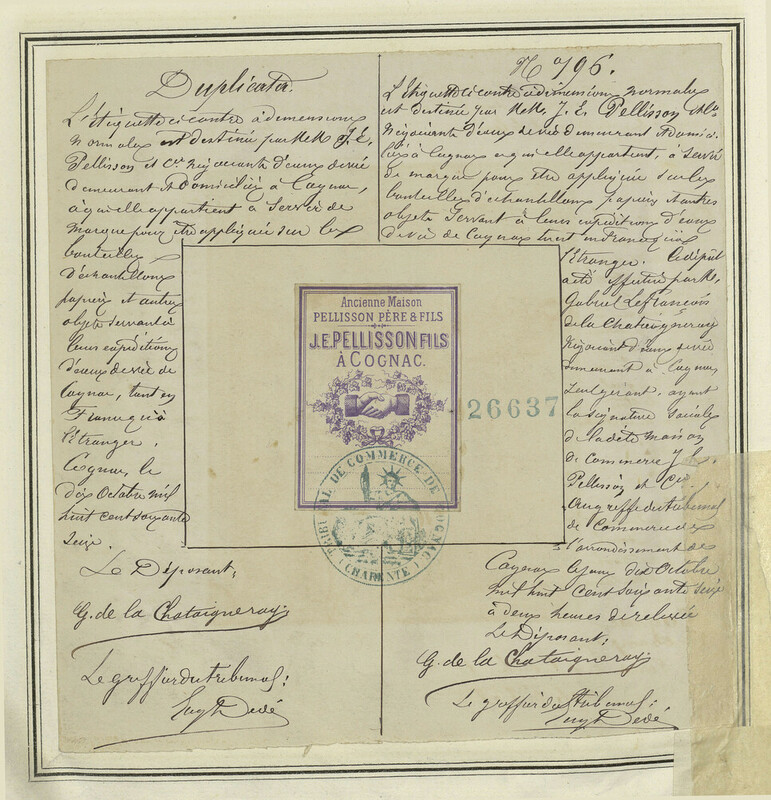 Duplicata.
L'étiquette ci contre à dimensions
normales est destinée par MM J. E.
Pellisson et Cie négociants d'eaux de vie
demeurant et domiciliés à Cognac,
à qui elle appartient à servir de
marque pour être appliquée sur les
bouteilles
d'échantillons
papiers et autres
objets servant à
leurs expéditions
d'eaux de vie de
Cognac, tant en
France qu'à
l'étranger.
Cognac, le
dix Octobre mil
huit cent soixante
seize.
Le Déposant,
G. de la Chataigneray
Le greffier du tribunal:
N° 796.
L'étiquette ci contre à dimensions normales
est destinée par MM. J. E. Pellisson
Négociants d'eaux de vie demeurant et domici-
liés à Cognac à qui elle appartient, à servir
de marque pour être appliquée sur les
bouteilles d'échantillons papiers et autres
objets servant à leurs expéditions d'eaux
de vie de Cognac tant en France qu'à
l'étranger. Le dépôt
a été effectué par M.
Gabriel Le François
de la Chataigneray
Négociant d'eaux de vie
demeurant à Cognac
seul gérant, ayant
la signature sociale
de la dite maison
de Commerce J. E.
Pellisson et Cie.
au greffe du tribunal
de Commerce de
l'arrondissement de
Cognac ce jour dix Octobre
mil huit cent soixante seize
à deux heures de relevée
Le Déposant,
G. de la Chataigneray
Le greffier du tribunal:
Ancienne Maison
PELLISSON PÈRE & FILS
J.E. PELLISSON FILS
À COGNAC.
26637
TRIBUNAL DE COMMERCE DE COGNAC
(CHARENTE)